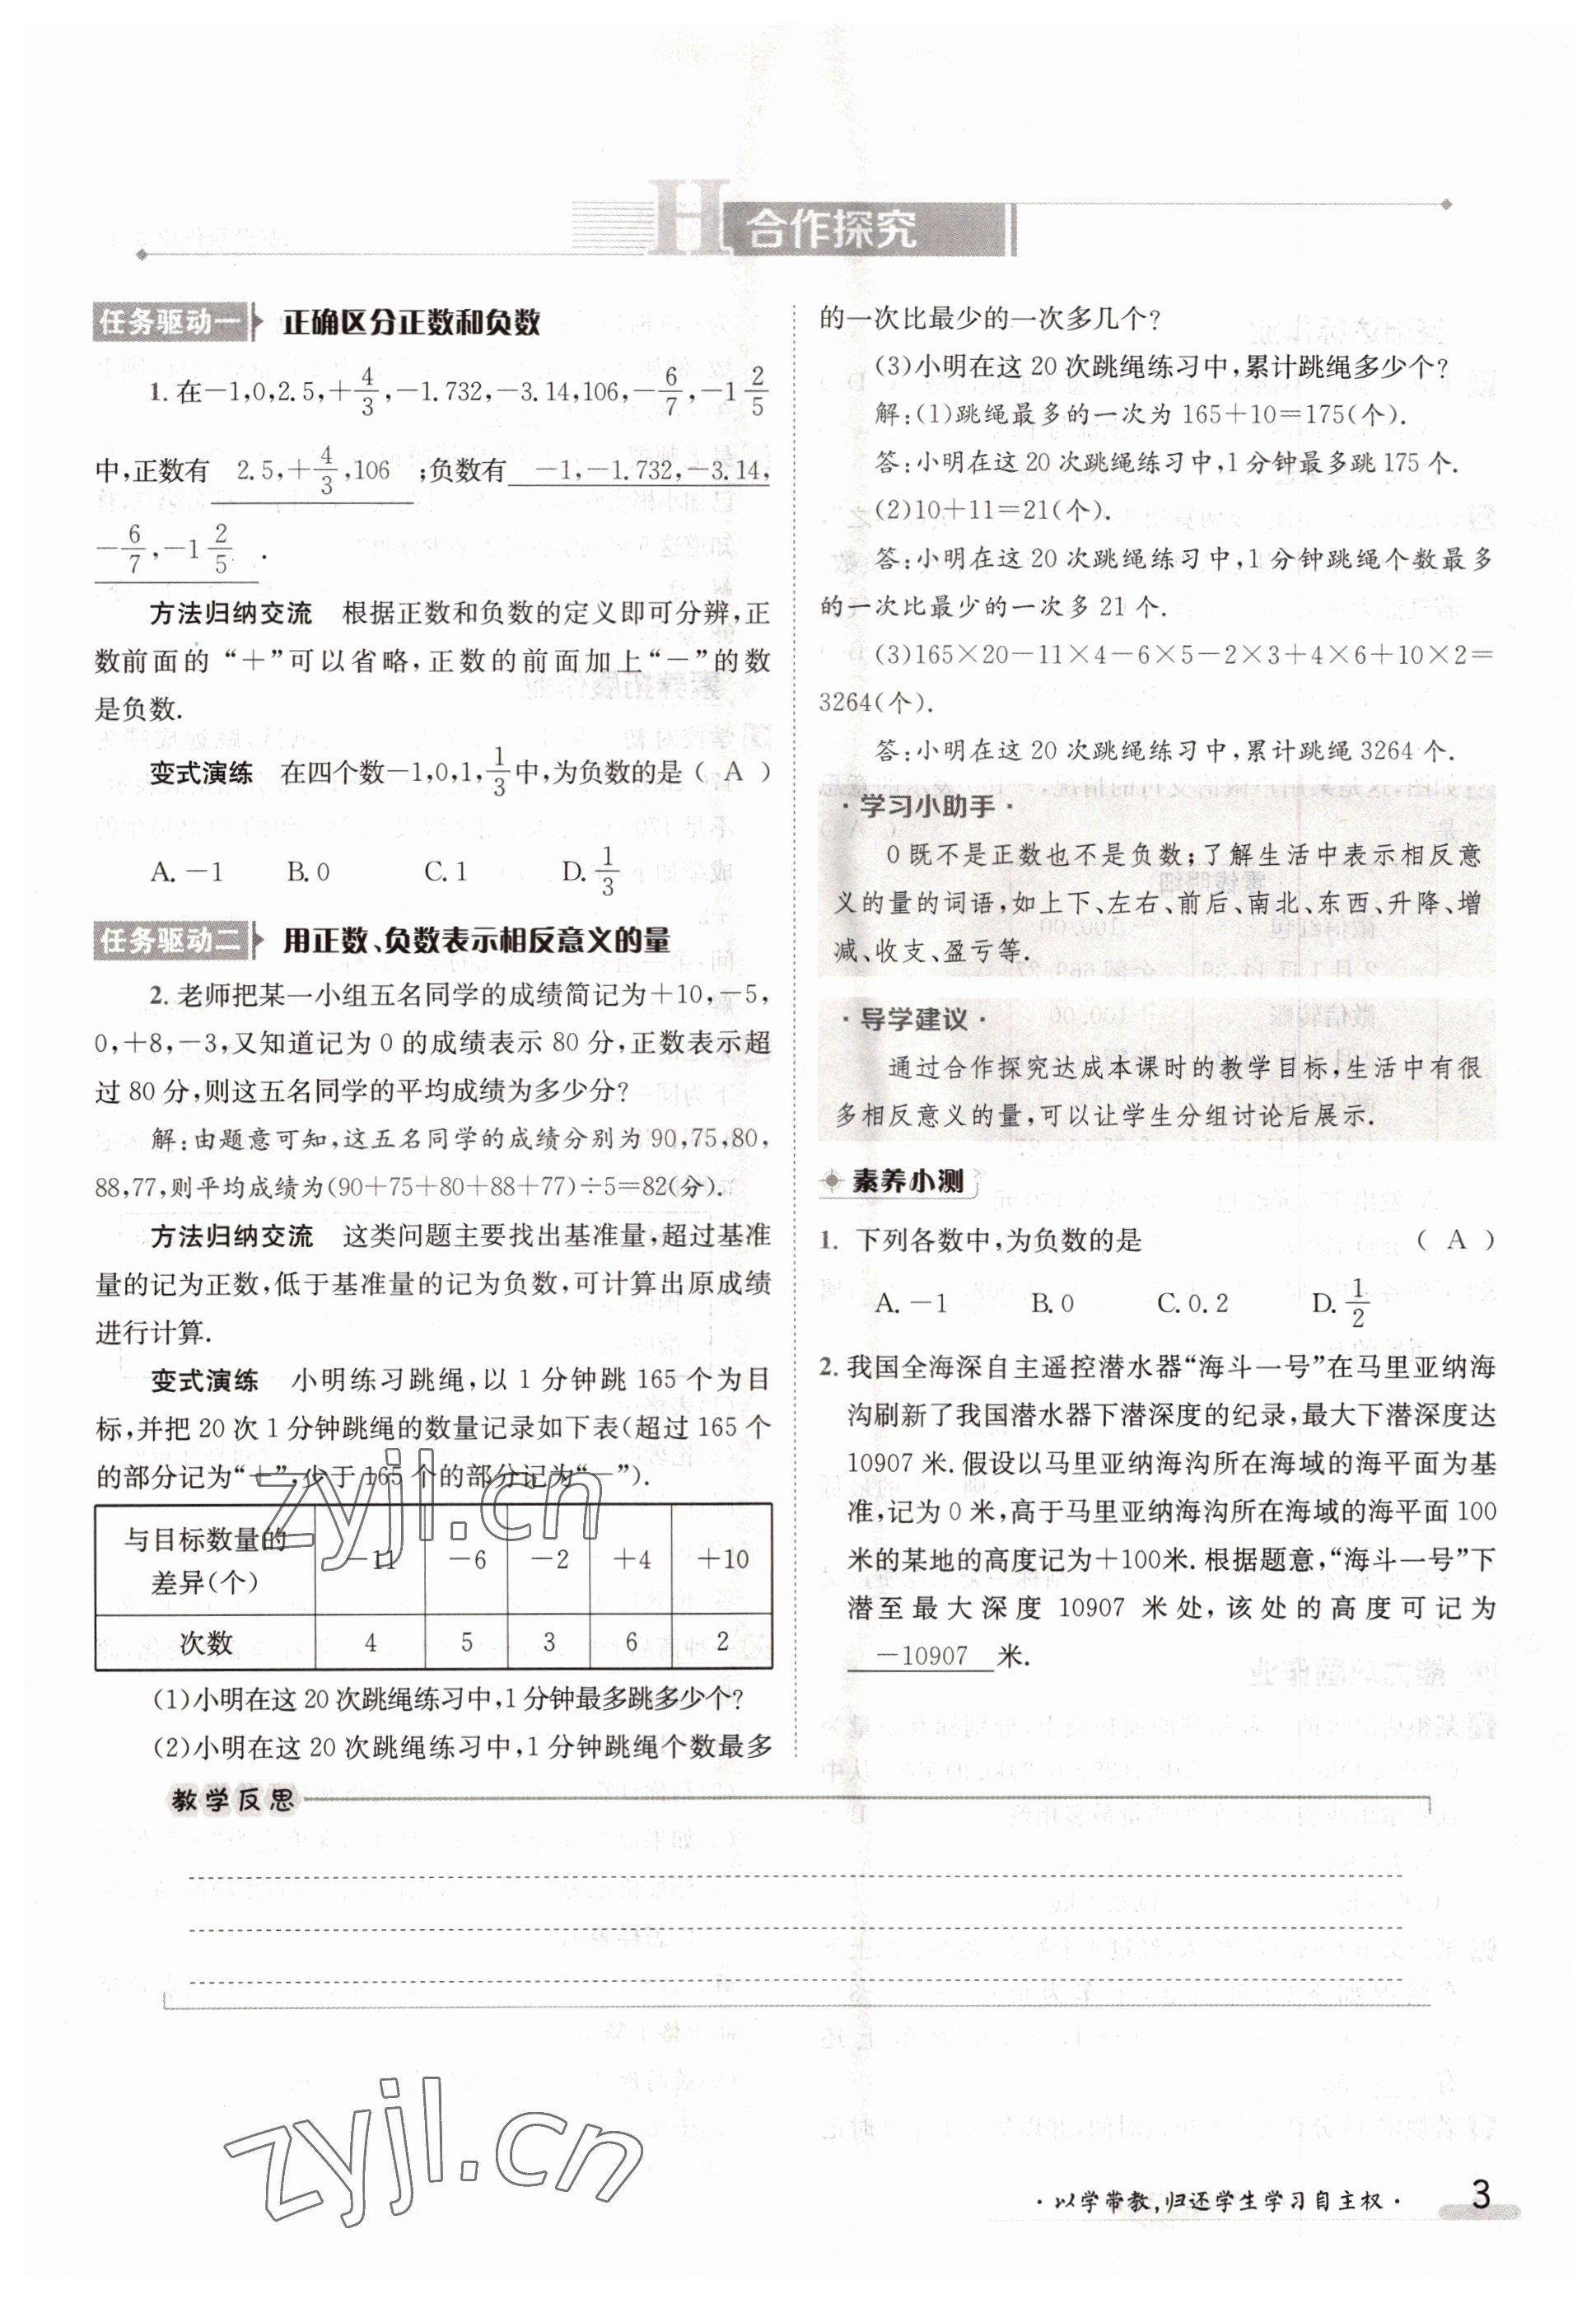 H 合作探究
任务驱动一 正确区分正数和负数
1. 在－1,0,2.5,＋4/3,－1.732,－3.14,106,－6/7,－1 2/5
中,正数有 2.5,＋4/3,106 ;负数有 －1,－1.732,－3.14,
－6/7,－1 2/5 .
方法归纳交流 根据正数和负数的定义即可分辨,正
数前面的“＋”可以省略,正数的前面加上“－”的数
是负数.
变式演练 在四个数－1,0,1,1/3中,为负数的是( A )
A.－1 B.0 C.1 D.1/3
任务驱动二 用正数、负数表示相反意义的量
2. 老师把某一小组五名同学的成绩简记为＋10,－5,
0,＋8,－3,又知道记为 0 的成绩表示 80 分,正数表示超
过 80 分,则这五名同学的平均成绩为多少分?
解:由题意可知,这五名同学的成绩分别为 90,75,80,
88,77,则平均成绩为(90＋75＋80＋88＋77)÷5＝82(分).
方法归纳交流 这类问题主要找出基准量,超过基准
量的记为正数,低于基准量的记为负数,可计算出原成绩
进行计算.
变式演练 小明练习跳绳,以 1 分钟跳 165 个为目
标,并把 20 次 1 分钟跳绳的数量记录如下表(超过 165 个
的部分记为“＋”,少于 165 个的部分记为“－”).
与目标数量的
差异(个) －11 －6 －2 ＋4 ＋10
次数 4 5 3 6 2
(1)小明在这 20 次跳绳练习中,1 分钟最多跳多少个?
(2)小明在这 20 次跳绳练习中,1 分钟跳绳个数最多
的一次比最少的一次多几个?
(3)小明在这 20 次跳绳练习中,累计跳绳多少个?
解:(1)跳绳最多的一次为 165＋10＝175(个).
答:小明在这 20 次跳绳练习中,1 分钟最多跳 175 个.
(2)10＋11＝21(个).
答:小明在这 20 次跳绳练习中,1 分钟跳绳个数最多
的一次比最少的一次多 21 个.
(3)165×20－11×4－6×5－2×3＋4×6＋10×2＝
3264(个).
答:小明在这 20 次跳绳练习中,累计跳绳 3264 个.
·学习小助手·
0 既不是正数也不是负数;了解生活中表示相反意
义的量的词语,如上下、左右、前后、南北、东西、升降、增
减、收支、盈亏等.
·导学建议·
通过合作探究达成本课时的教学目标,生活中有很
多相反意义的量,可以让学生分组讨论后展示.
素养小测
1. 下列各数中,为负数的是 ( A )
A.－1 B.0 C.0.2 D.1/2
2. 我国全海深自主遥控潜水器“海斗一号”在马里亚纳海
沟刷新了我国潜水器下潜深度的纪录,最大下潜深度达
10907 米.假设以马里亚纳海沟所在海域的海平面为基
准,记为 0 米,高于马里亚纳海沟所在海域的海平面 100
米的某地的高度记为＋100米.根据题意,“海斗一号”下
潜至最大深度 10907 米处,该处的高度可记为
－10907 米.
教学反思
zyjl.cn
zyjl.cn
·以学带教,归还学生学习自主权· 3